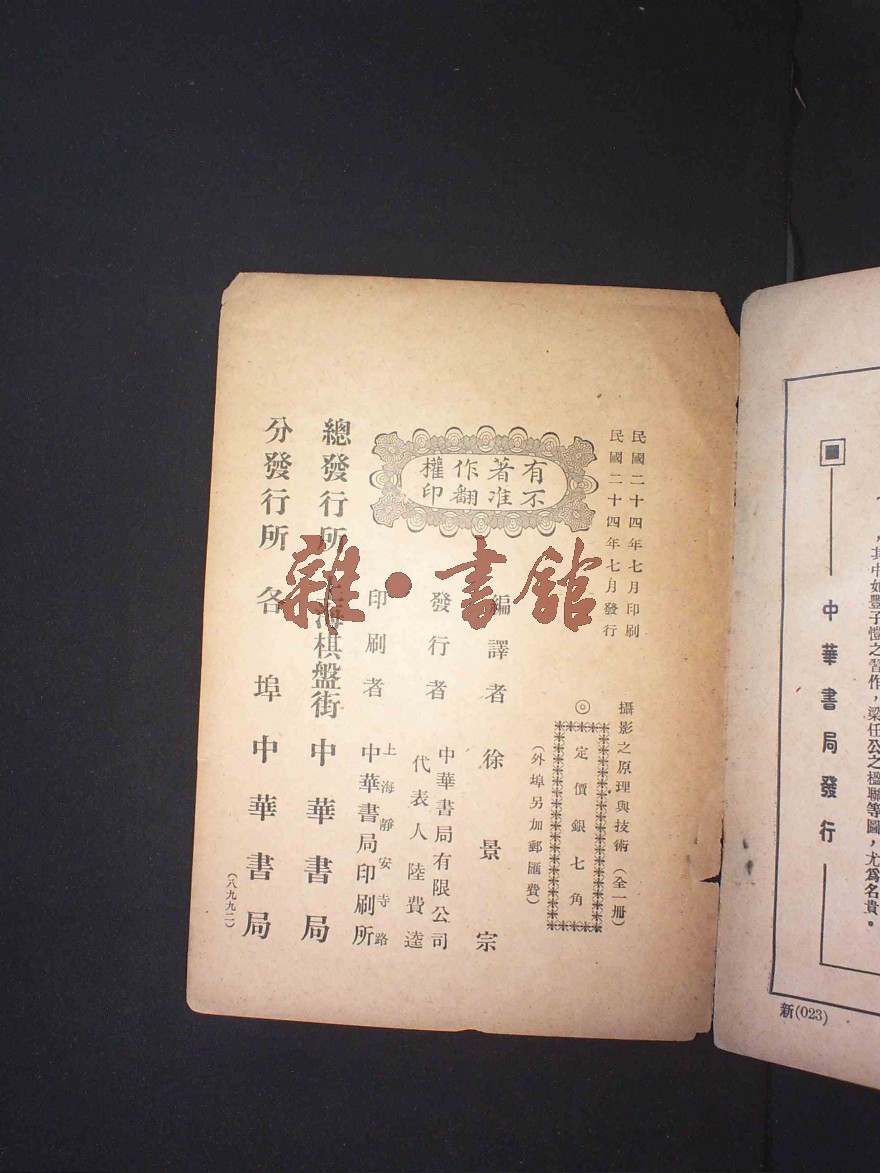 民國二十四年七月印刷
民國二十四年七月發行
有著作權
不准翻印
攝影之原理與技術（全一冊）
◎定價銀七角
（外埠另加郵匯費）
編譯者 徐景宗
發行者 中華書局有限公司
代表人 陸費逵
印刷者 上海靜安寺路
中華書局印刷所
總發行所 上海棋盤街 中華書局
分發行所 各埠 中華書局
（八九九二）
雜・書館
，其中如豐子愷之習作，梁任公之楹聯等圖，尤爲名貴。
中華書局發行
新(023)